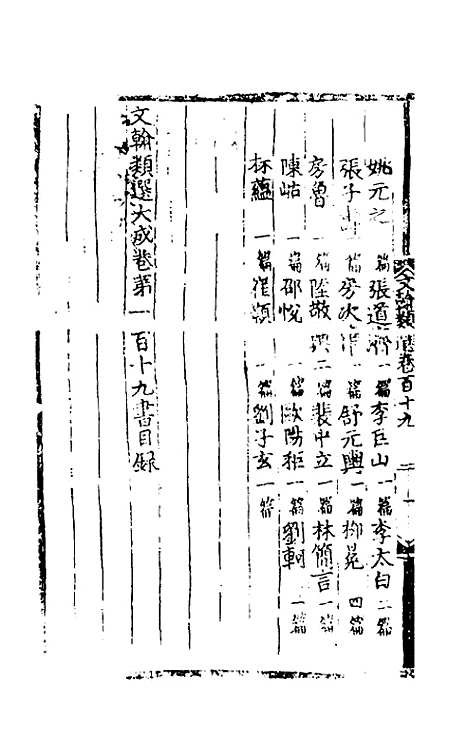 文翰類選卷百十九
姚元之 一篇 張道濟 一篇 李巨山 一篇 李太白 二篇
張子 一篇 房次律 一篇 舒元輿 一篇 柳冕 四篇
房魯 一篇 陸敬輿 二篇 裴中立 一篇 林簡言 一篇
陳岵 一篇 邵悅 一篇 歐陽秬 一篇 劉軻 一篇
林蘊 一篇 崔顥 一篇 劉子玄 一篇
文翰類選大成卷第一百十九書目錄